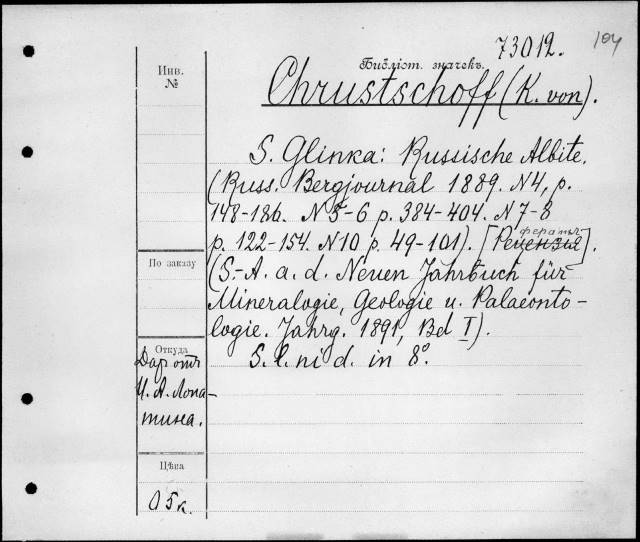 73012. 104
Библіот. значекъ.
Инв.
№
Chrustschoff (K. von).
S. Glinka: Russische Albite.
(Russ. Bergjournal 1889. N4, p.
148-186. N 5-6 p. 384-404. N 7-8
p. 122-154. N10 p. 49-101). [Рецензія].
фератъ
(S.-A. a. d. Neuen Jahrbuch für
Mineralogie, Geologie u. Palaeonto-
logie. Jahrg. 1891, Bd I).
S. l. ni d. in 8°.
По заказу
Откуда
Даръ отъ
И. А. Лопа-
тина.
Цѣна
05к.